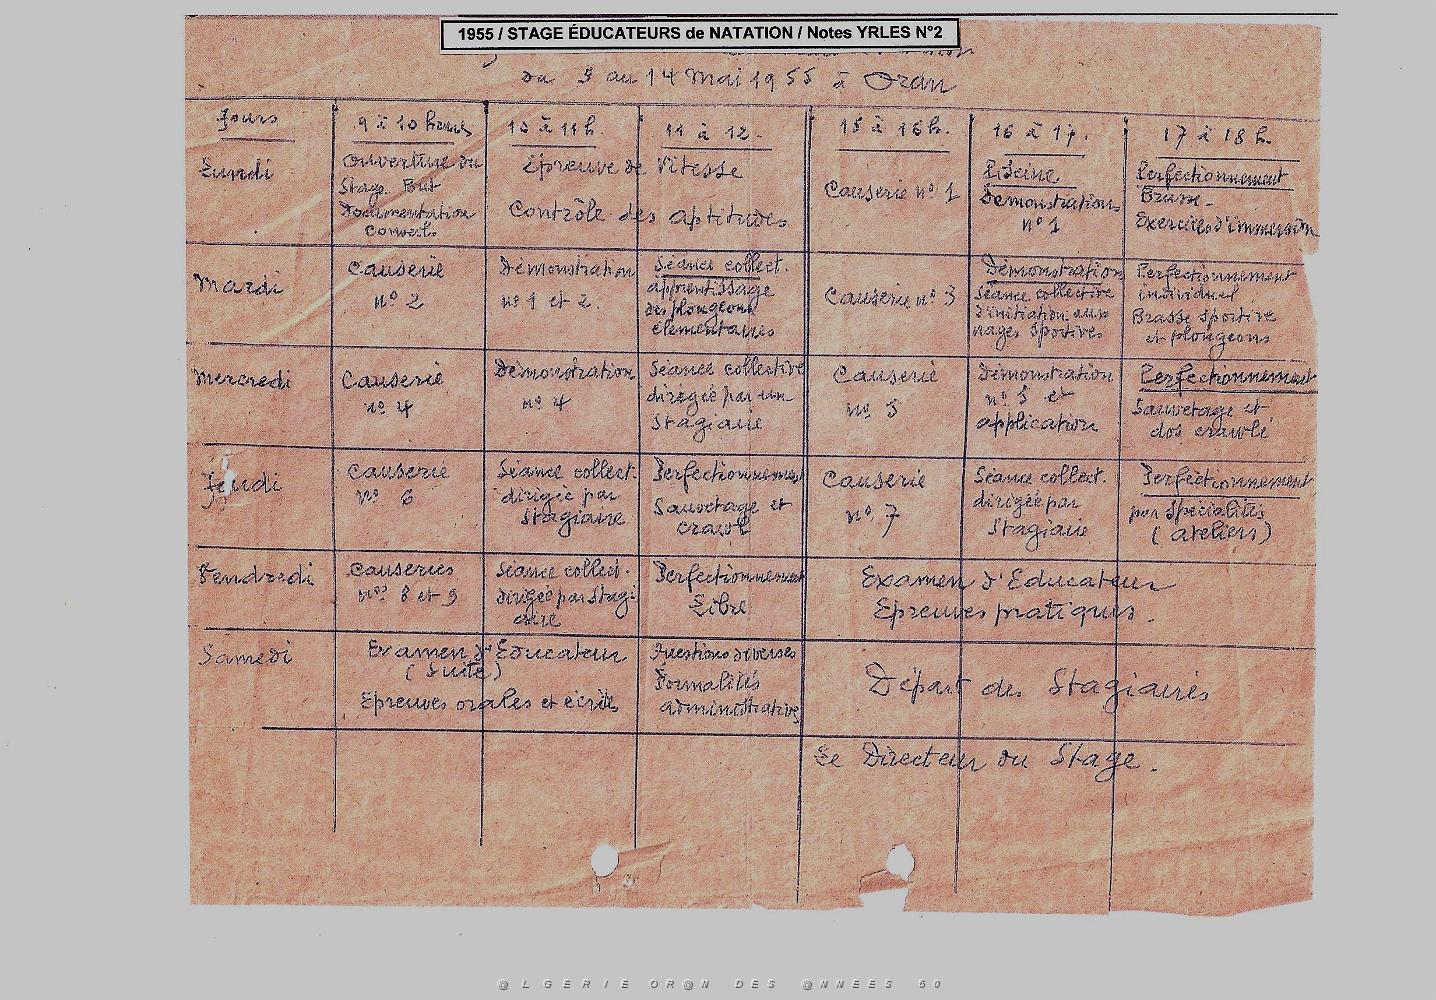 1955 / STAGE ÉDUCATEURS de NATATION / Notes YRLES N°2
du 9 au 14 Mai 1955 à Oran
Jours
9 à 10 heures
10 à 11 h.
11 à 12.
15 à 16 h.
16 à 17.
17 à 18 h.
Lundi
Ouverture du
Stage. But
Documentation
Conseils
Epreuve de Vitesse
Contrôle des aptitudes
Causerie n° 1
Piscine
Démonstrations
n° 1
Perfectionnement
Brasse -
Exercices d'immersion
Mardi
Causerie
n° 2
Démonstration
n° 1 et 2.
Séance collect.
apprentissage
des plongeons
élémentaires
Causerie n° 3
Démonstration
Séance collective
d'initiation aux
nages sportives
Perfectionnement
individuel
Brasse sportive
et plongeons
Mercredi
Causerie
n° 4
Démonstration
n° 4
Séance collective
dirigée par un
Stagiaire
Causerie
n° 5
Démonstration
n° 5 et
application
Perfectionnement
Sauvetage et
dos crawlé
Jeudi
Causerie
n° 6
Séance collect.
dirigée par
Stagiaire
Perfectionnement
Sauvetage et
crawl
Causerie
n° 7
Séance collect.
dirigée par
Stagiaire
Perfectionnement
par Spécialités
(ateliers)
Vendredi
Causeries
nos 8 et 9
Séance collect.
dirigée par Stagi
aire
Perfectionnement
Libre
Examen d'Educateur
Epreuves pratiques.
Samedi
Examen d'Educateur
(Suite)
Epreuves orales et écrites
Questions diverses
Formalités
administratives
Départ des Stagiaires
Le Directeur du Stage.
@LGERIE OR@N DES @NNEES 50